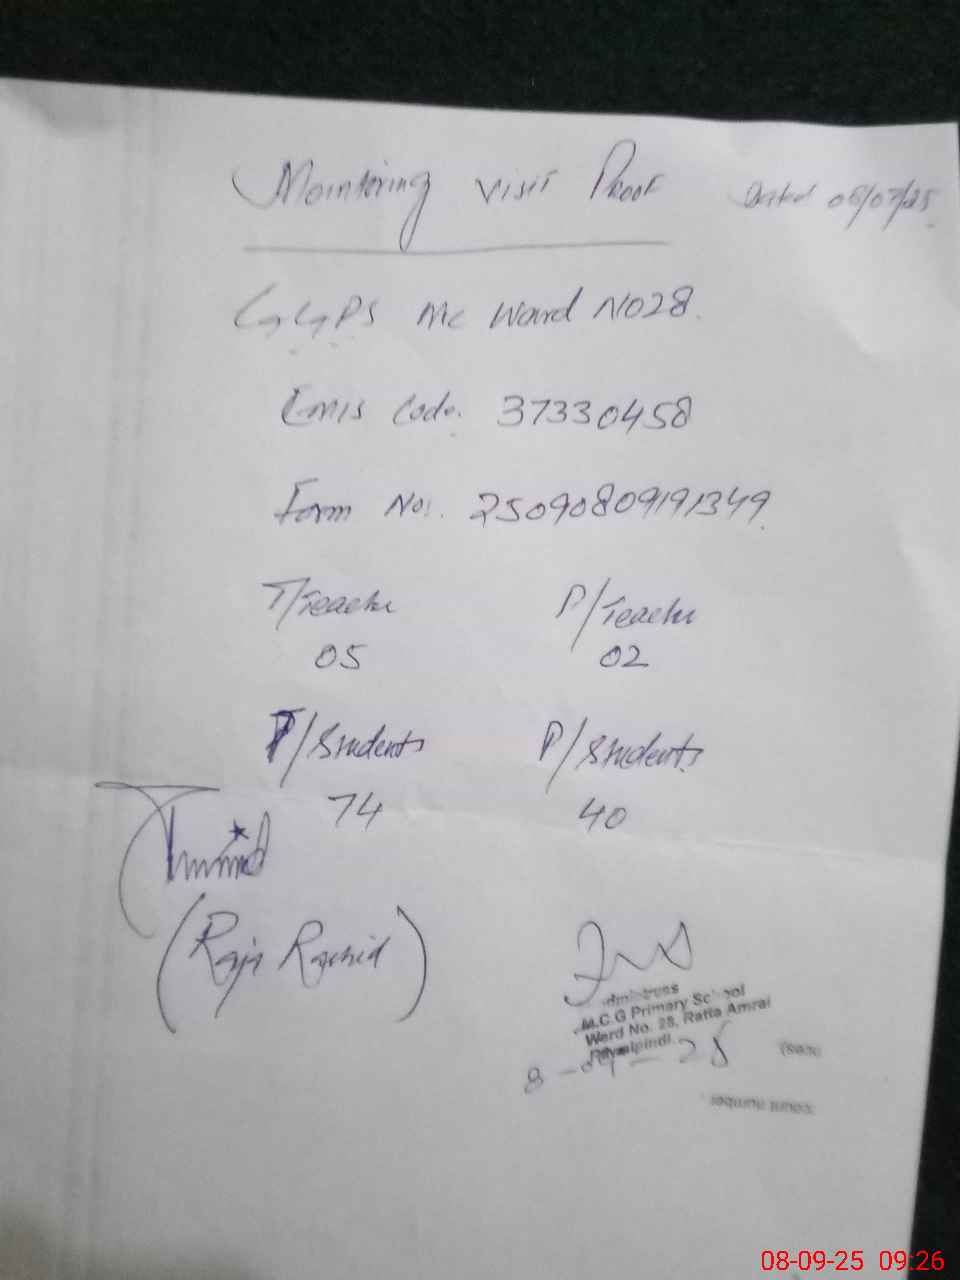 Monitoring Visit Proof Dated 08/09/25
GGPS MC Ward NO28.
Emis Code. 37330458
Form No:. 25090809191349
T/Teache P/Teache
05 02
T/Students P/Students
74 40
(Raja Rashid)
dmistress
M.C.G Primary School
Ward No. 28, Ratta Amral
Rawalpindi.
8-09-25
08-09-25 09:26